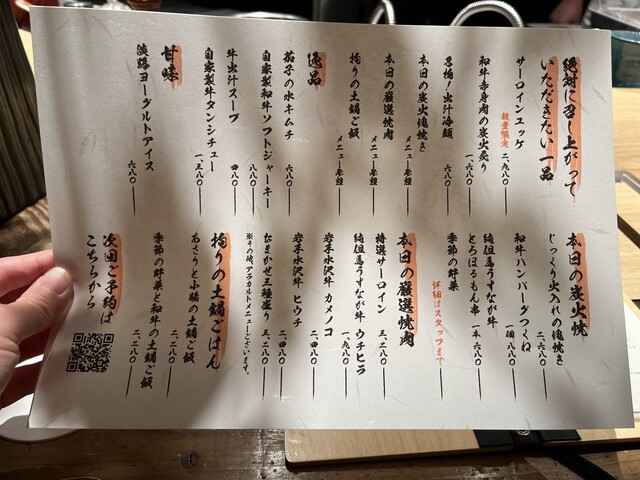 絶対に召し上がって
いただきたい一品
サーロインユッケ
数量限定 二、九八〇
和牛赤身肉の炭火炙り 一、六八〇
名物!出汁冷麺 六八〇
本日の炭火塊焼き メニュー参照
本日の厳選焼肉 メニュー参照
拘りの土鍋ご飯 メニュー参照
逸品
茄子の水キムチ 六八〇
自家製和牛ソフトジャーキー 八八〇
牛出汁スープ 四八〇
自家製牛タンシチュー 一、三八〇
甘味
淡路ヨーグルトアイス 六八〇
本日の炭火焼
じっくり火入れの塊焼き 二、六八〇
和牛ハンバーグつくね 一個 八八〇
純但馬うすなが牛
とろほるもん串 一本 六八〇
季節の野菜 詳細はスタッフまで
本日の厳選焼肉
特選サーロイン 三、二八〇
純但馬うすなが牛 ウチヒラ 一、九八〇
岩手水沢牛 カメノコ 二、四八〇
岩手水沢牛 ヒウチ 二、四八〇
おまかせ三種盛り 三、二八〇
※その他、アラカルトメニューございます。
拘りの土鍋ごはん
あさりと小腸の土鍋ご飯 二、二八〇
季節の野菜と和牛の土鍋ご飯 二、二八〇
次回ご予約は
こちらから